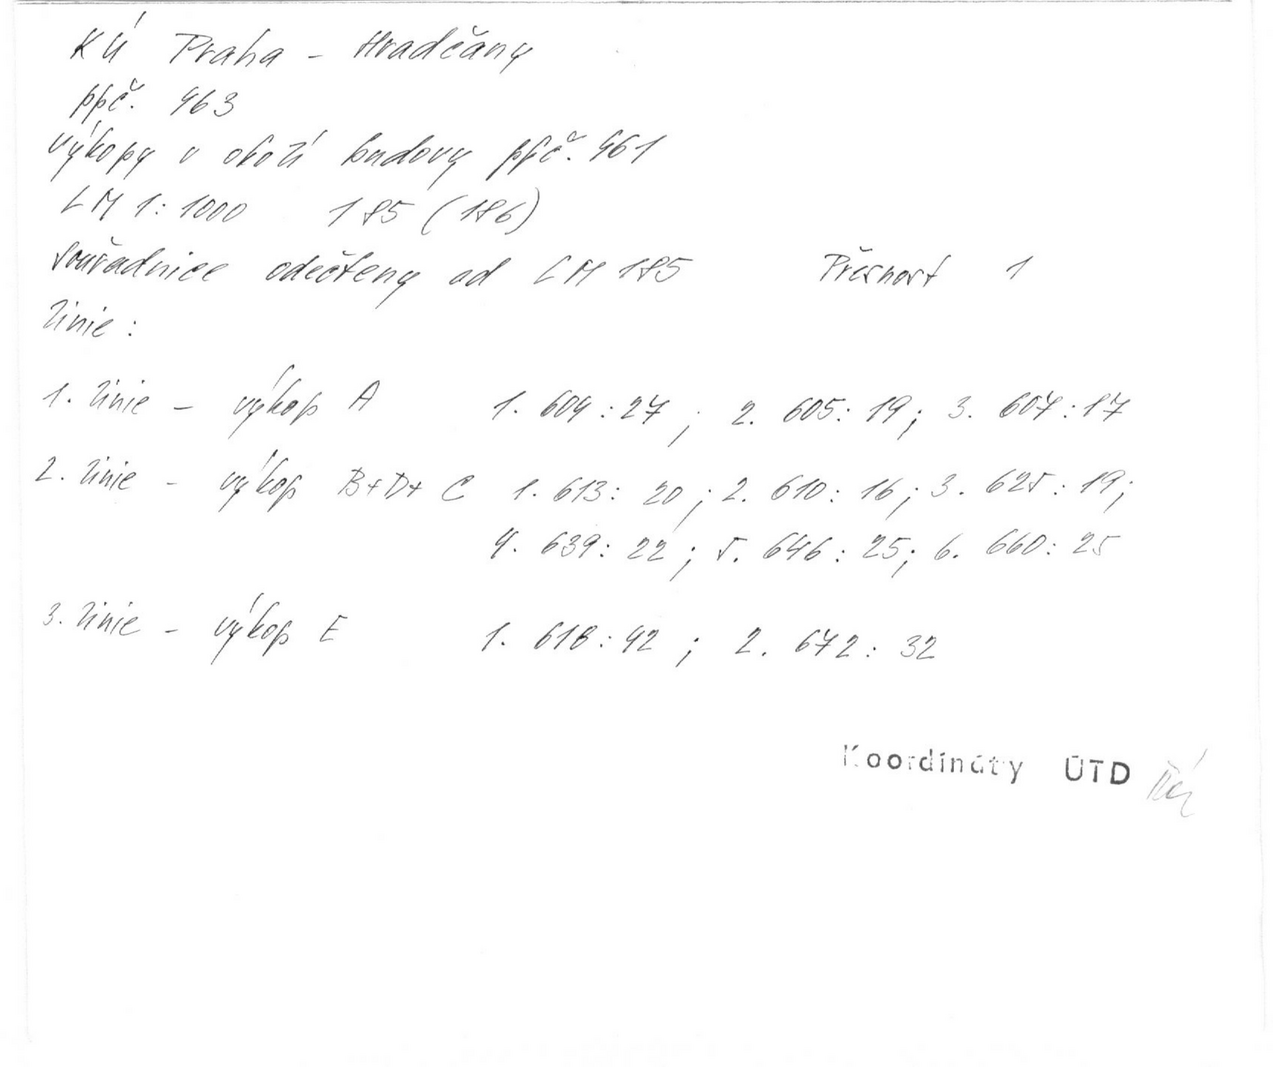 KÚ Praha - Hradčany
ppč. 463
výkopy v okolí budovy ppč. 461
LM 1:1000 185 (186)
souřadnice odečteny od LM 185 Přesnost 1
linie:
1. linie - výkop A 1. 604:27 ; 2. 605:19; 3. 607:17
2. linie - výkop B+D+C 1. 613:20 ; 2. 610:16; 3. 625:19;
4. 639:22 ; 5. 646:25; 6. 660:25
3. linie - výkop E 1. 618:42 ; 2. 672:32
Koordináty ÚTD